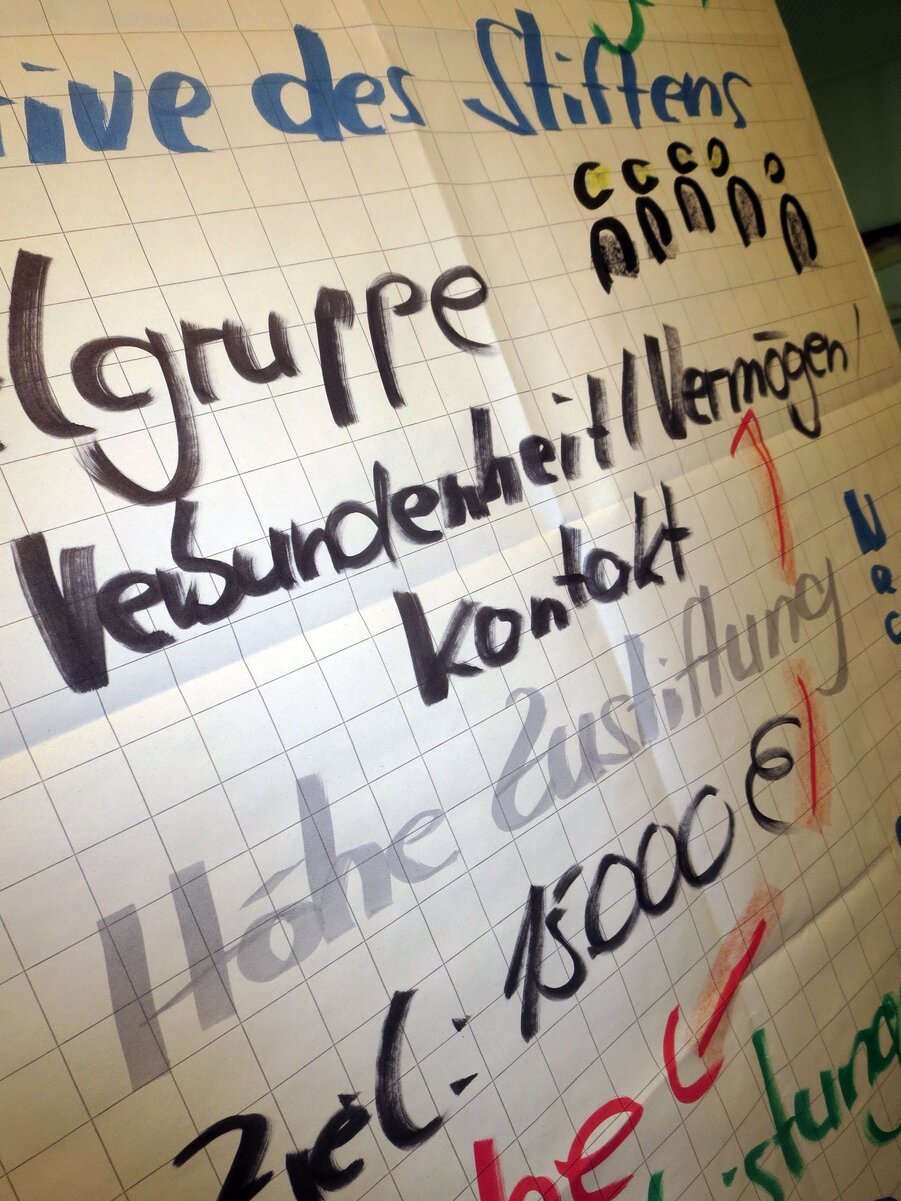 tive des Stiftens
lgruppe
Verbundenheit/Vermögen/
Kontakt
Höhe Zustiftung
Ziel: 15000 €